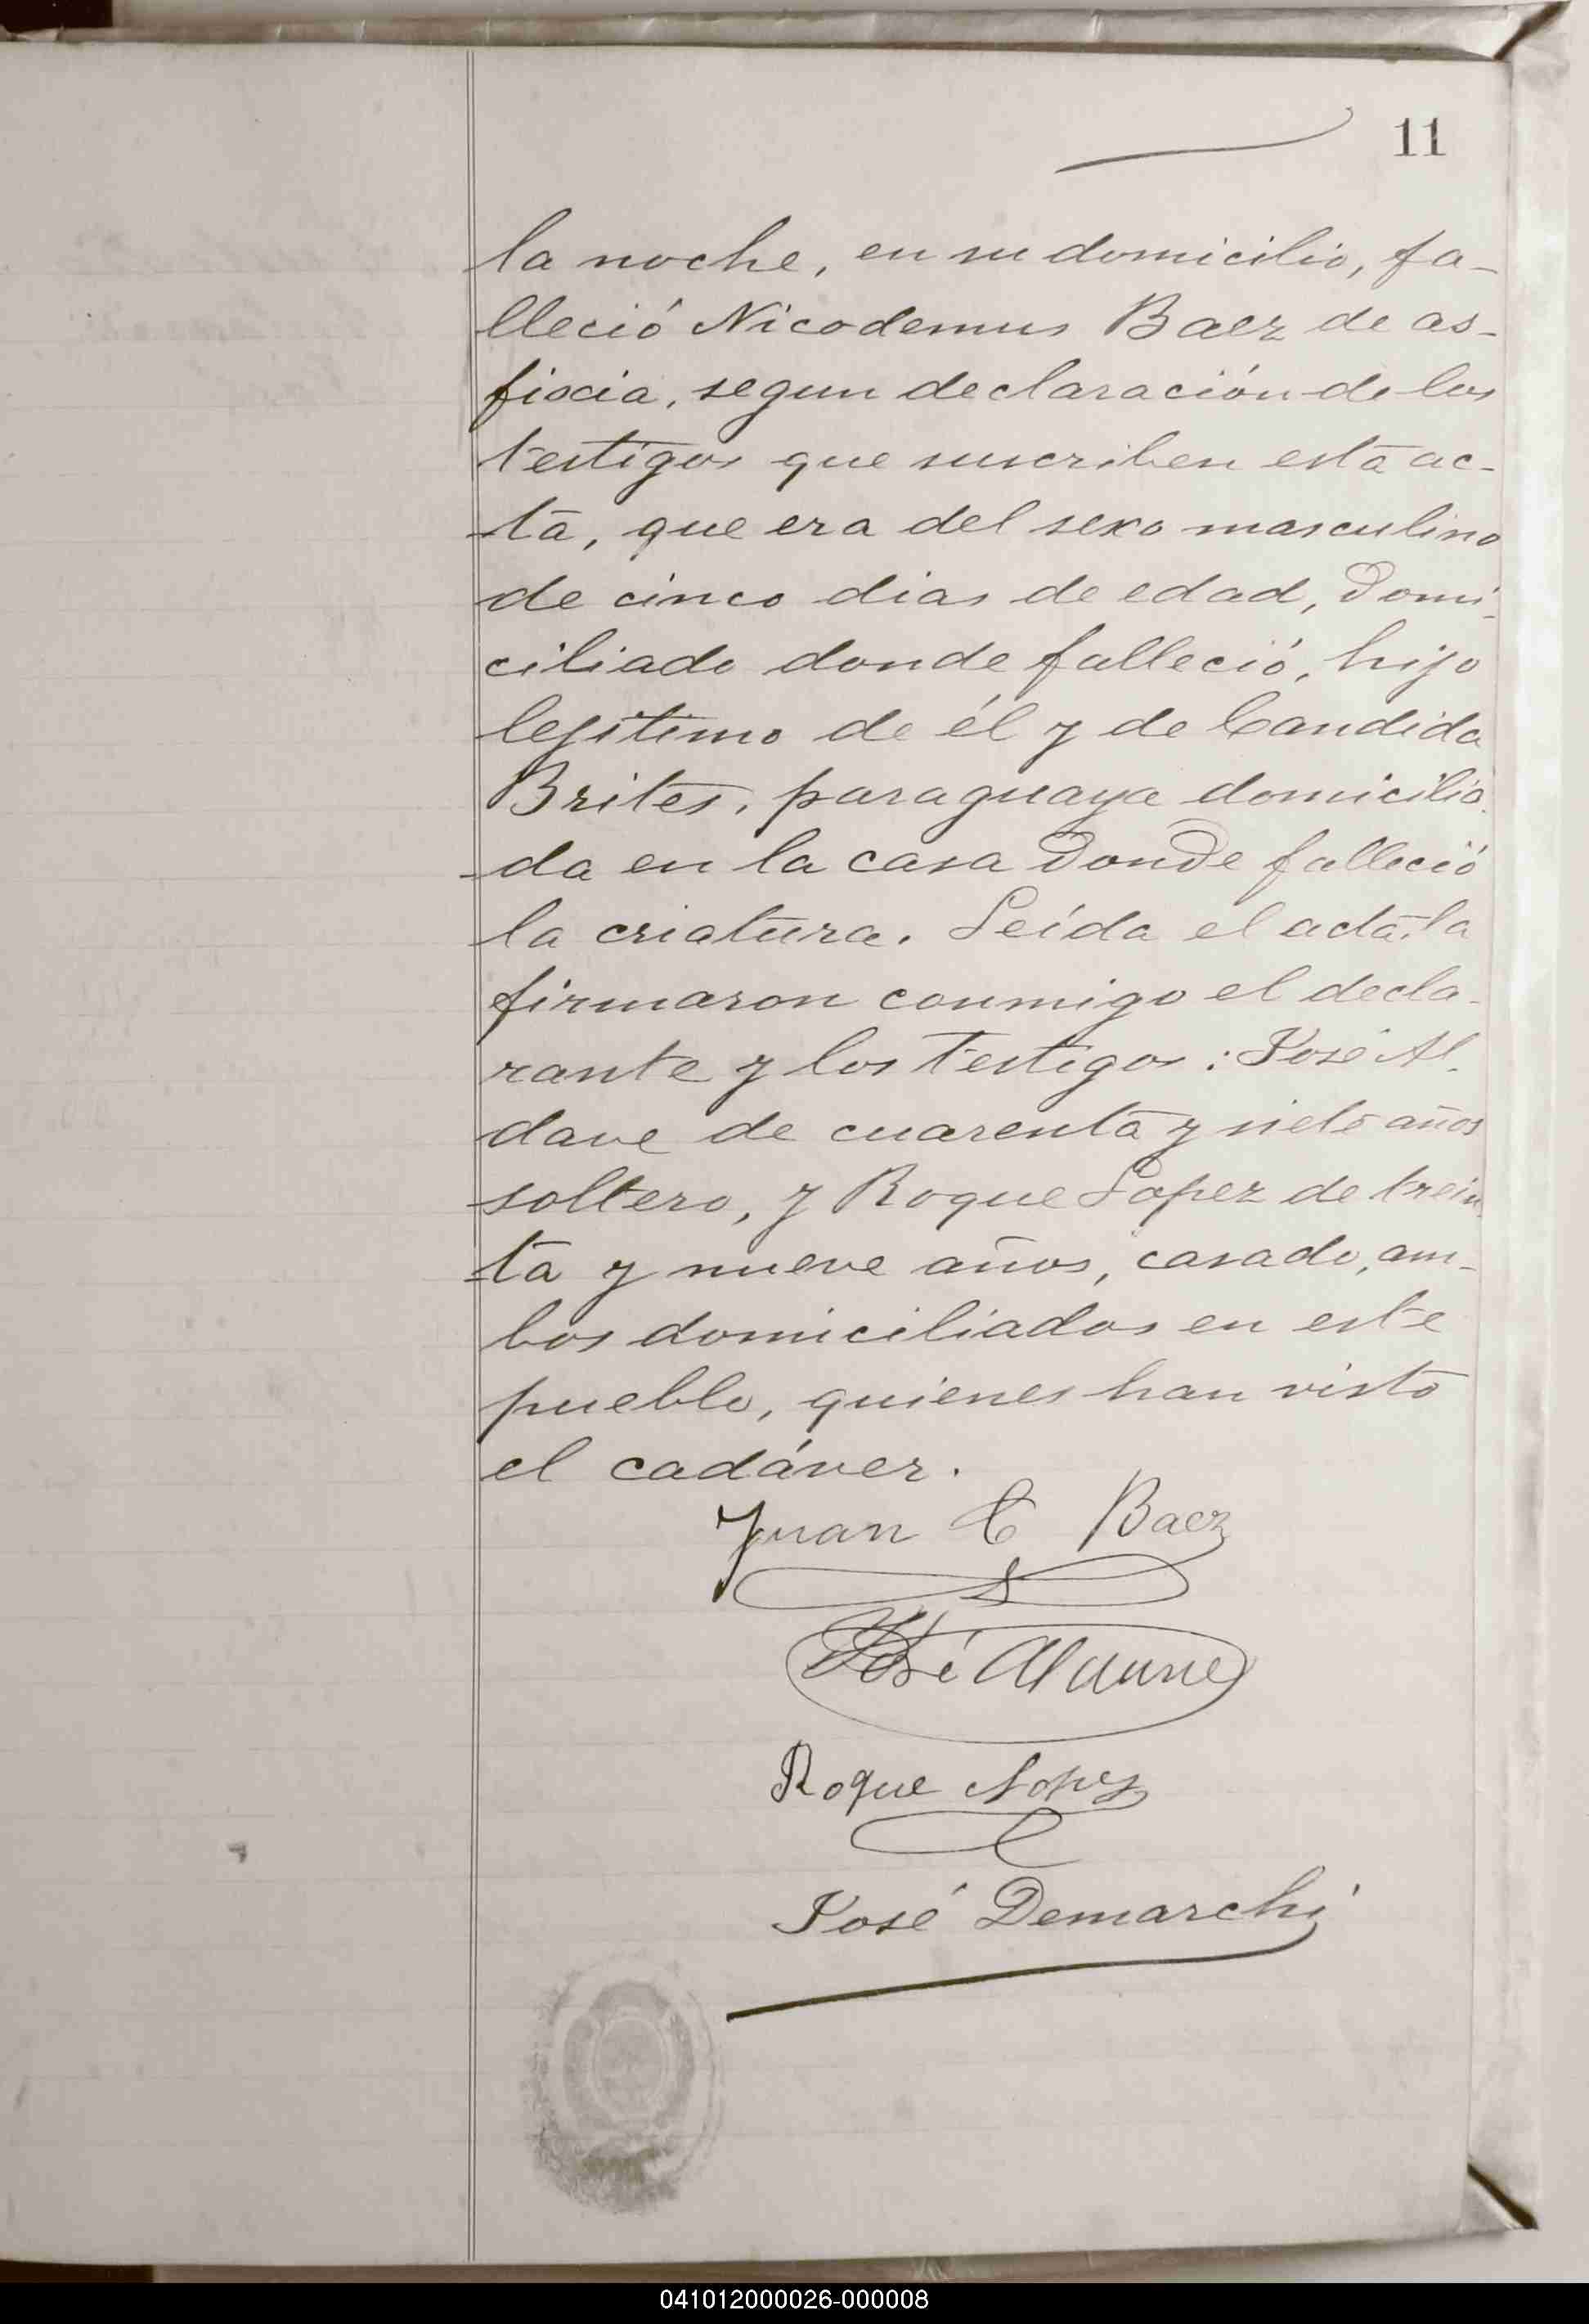 11
la noche, en su domicilio, fa-
lleció Nicodemus Baez de as-
fixia, segun declaración de los
testigos que suscriben esta ac-
ta, que era del sexo masculino
de cinco dias de edad, domi-
ciliado donde falleció, hijo
lejitimo de él y de Candida
Brites, paraguaya domicilia-
da en la casa donde falleció
la criatura. Leída el acta, la
firmaron conmigo el decla-
rante y los testigos: José Al-
dave de cuarenta y siete años
soltero, y Roque Lopez de trein-
ta y nueve años, casado, am-
bos domiciliados en este
pueblo, quienes han visto
el cadáver.
Juan C Baez
José Aldave
Roque Lopez
José Demarchi
041012000026-000008